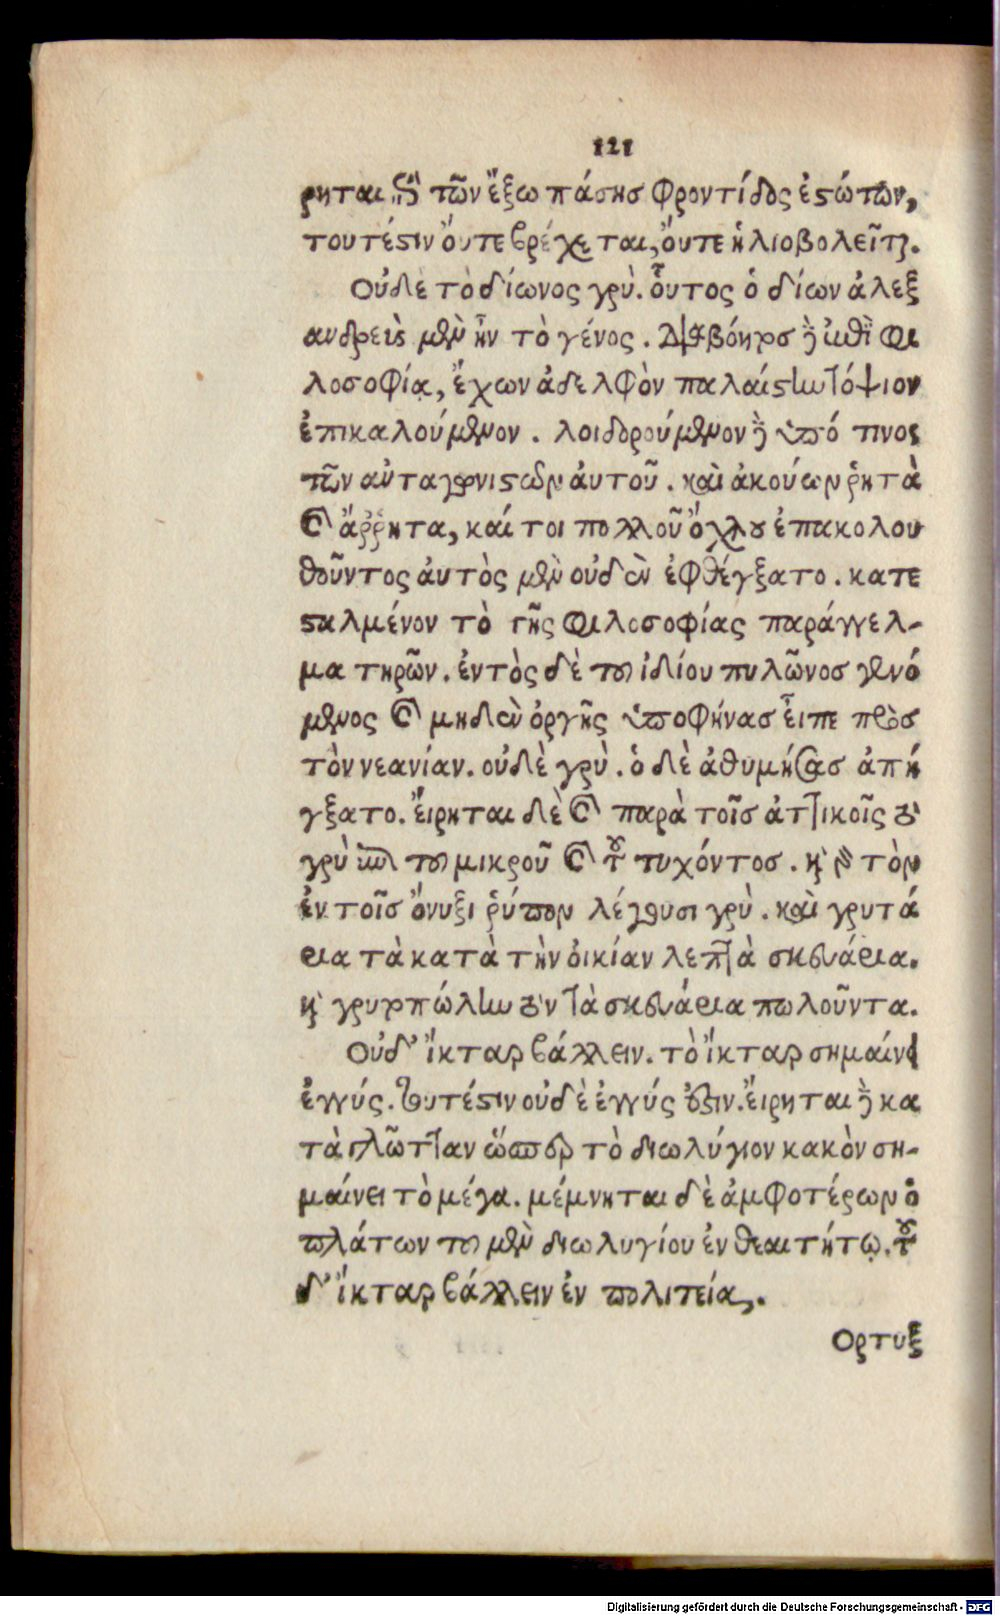 121
ρηται ἐπὶ τῶν ἔξω πάσησ φροντίδος ἐστώτων,
τουτέστιν ὄυτε βρέχεται, ὄυτε ἡλιοβολεῖται.
Οὐδὲ τὸ δίωνος γρύ. οὗτος ὁ δίων ἀλεξ
ανδρεὺς μὲν ἦν τὸ γένος. διαβόητοσ δὲ ἐπὶ φι
λοσοφίᾳ, ἔχων ἀδελφὸν παλαίστην τόψιον
ἐπικαλούμενον. λοιδορούμενον δὲ ὑπό τινος
τῶν ἀνταγωνιστῶν ἀυτοῦ. καὶ ἀκούων ῥητὰ
καὶ ἄῤῥητα, καί τοι πολλοῦ ὄχλου ἐπακολου
θοῦντος ἀυτὸς μὲν οὐδὲν ἐφθέγξατο. κατε
σταλμένον τὸ τῆς φιλοσοφίας παράγγελ-
μα τηρῶν. ἐντὸς δὲ τοῦ ἰδίου πυλῶνοσ γενό
μενος καὶ μηδὲν ὀργῆς ὑποφήνασ εἶπε πρὸσ
τὸν νεανίαν. οὐδὲ γρύ. ὁ δὲ ἀθυμήσας ἀπή
γξατο. ἔιρηται δὲ καὶ παρὰ τοῖσ ἀττικοῖς τὸ
γρὺ ἐπὶ τοῦ μικροῦ καὶ τοῦ τυχόντοσ. καὶ γὰρ τὸν
ἐν τοῖσ ὄνυξι ῥύπον λέγουσι γρύ. καὶ γρυτά
ρια τὰ κατὰ τὴν ὀικίαν λεπτὰ σκευάρια.
καὶ γρυτοπώλην τὸν τὰ σκευάρια πωλοῦντα.
Οὐδ' ἴκταρ βάλλειν. τὸ ἴκταρ σημαίνει
ἐγγύς. τουτέστιν οὐδὲ ἐγγύς ἐστιν. ἔιρηται δὲ κα
τὰ γλῶτταν ὥσπερ τὸ διωλύγιον κακὸν ση-
μαίνει τὸ μέγα. μέμνηται δὲ ἀμφοτέρων ὁ
πλάτων τοῦ μὲν διωλυγίου ἐν θεαιτήτῳ. τοῦ
δ' ἴκταρ βάλλειν ἐν πολιτείᾳ.
Ορτυξ
Digitalisierung gefördert durch die Deutsche Forschungsgemeinschaft - DFG